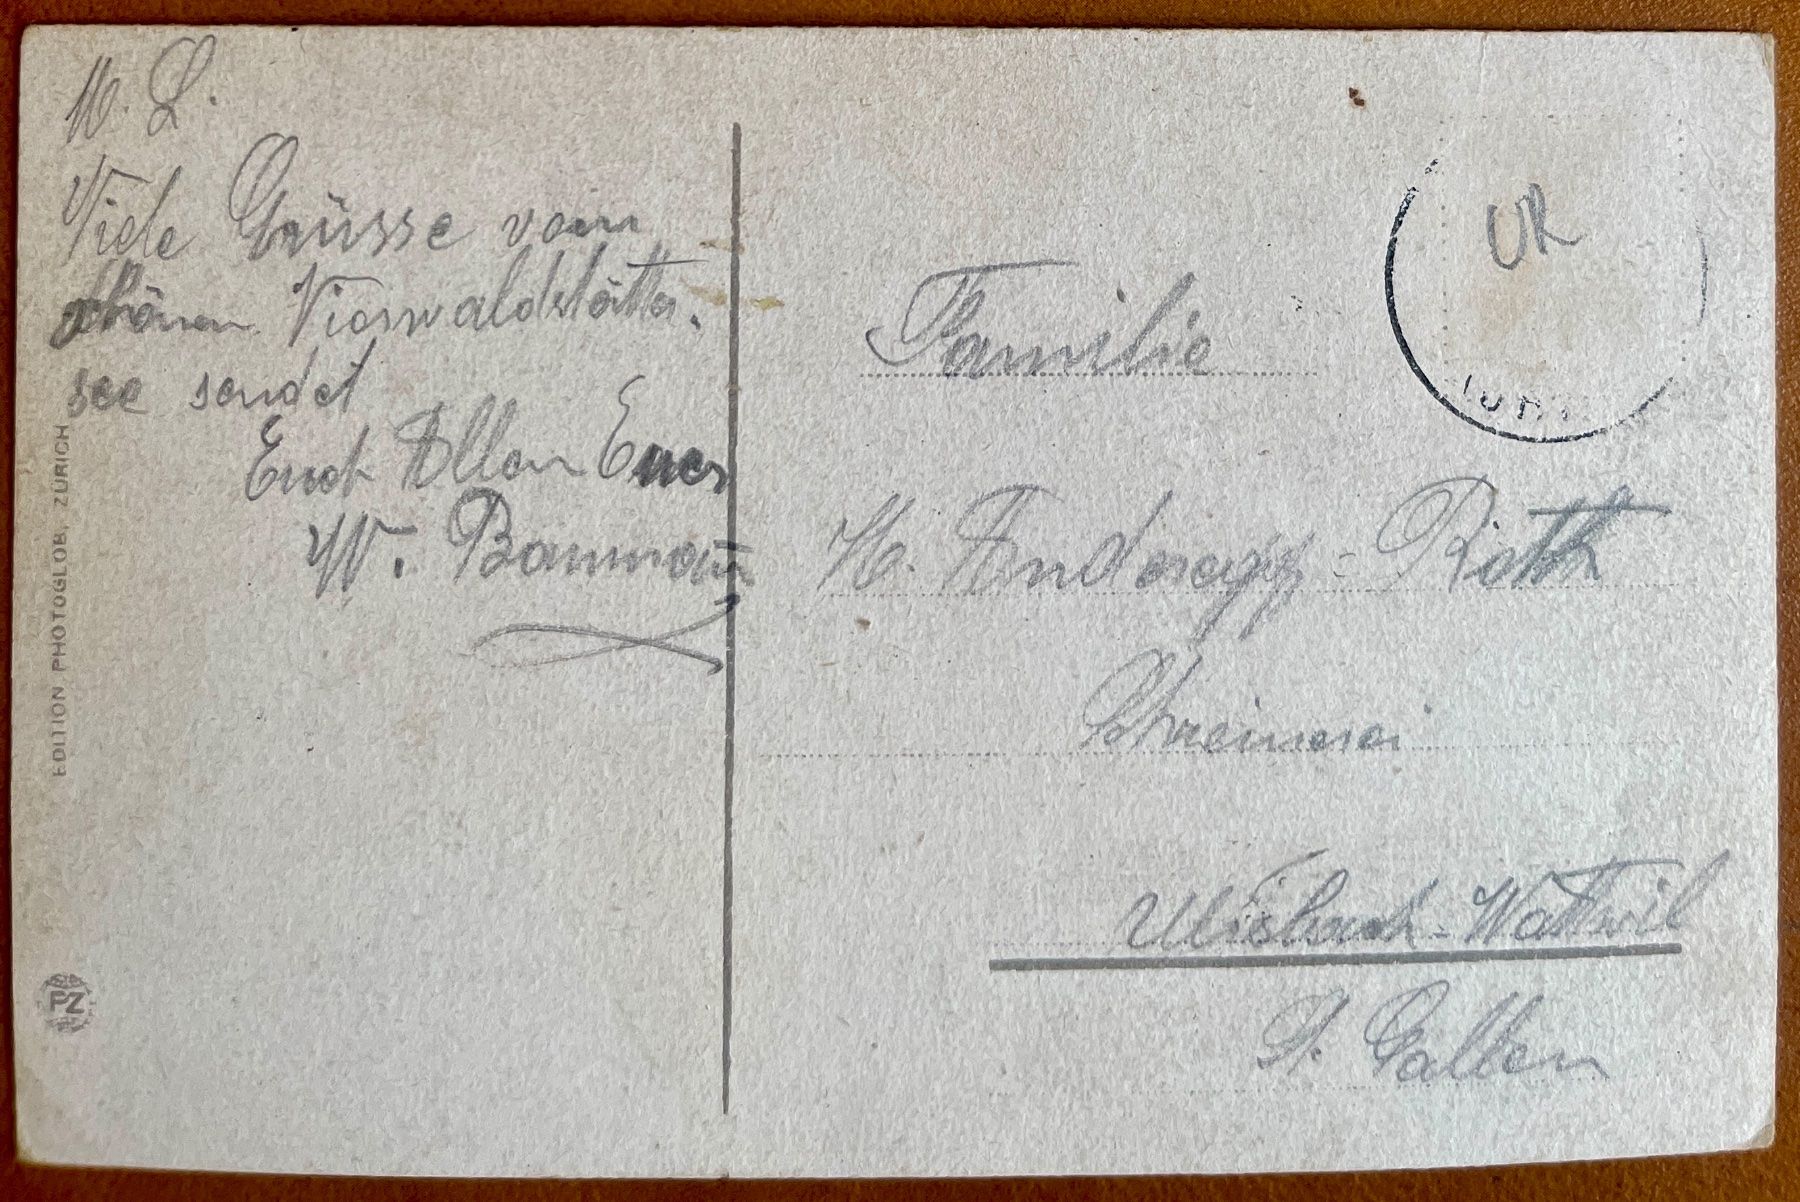 M. L.
Viele Grüsse vom
schönen Vierwaldstätter.
see sendet
Euch Allen Euer
W. Baumann
EDITION PHOTOGLOB, ZÜRICH
PZ
UR
Familie
H. Anderegg-Roth
Schreinerei
Ulisbach-Wattwil
St. Gallen